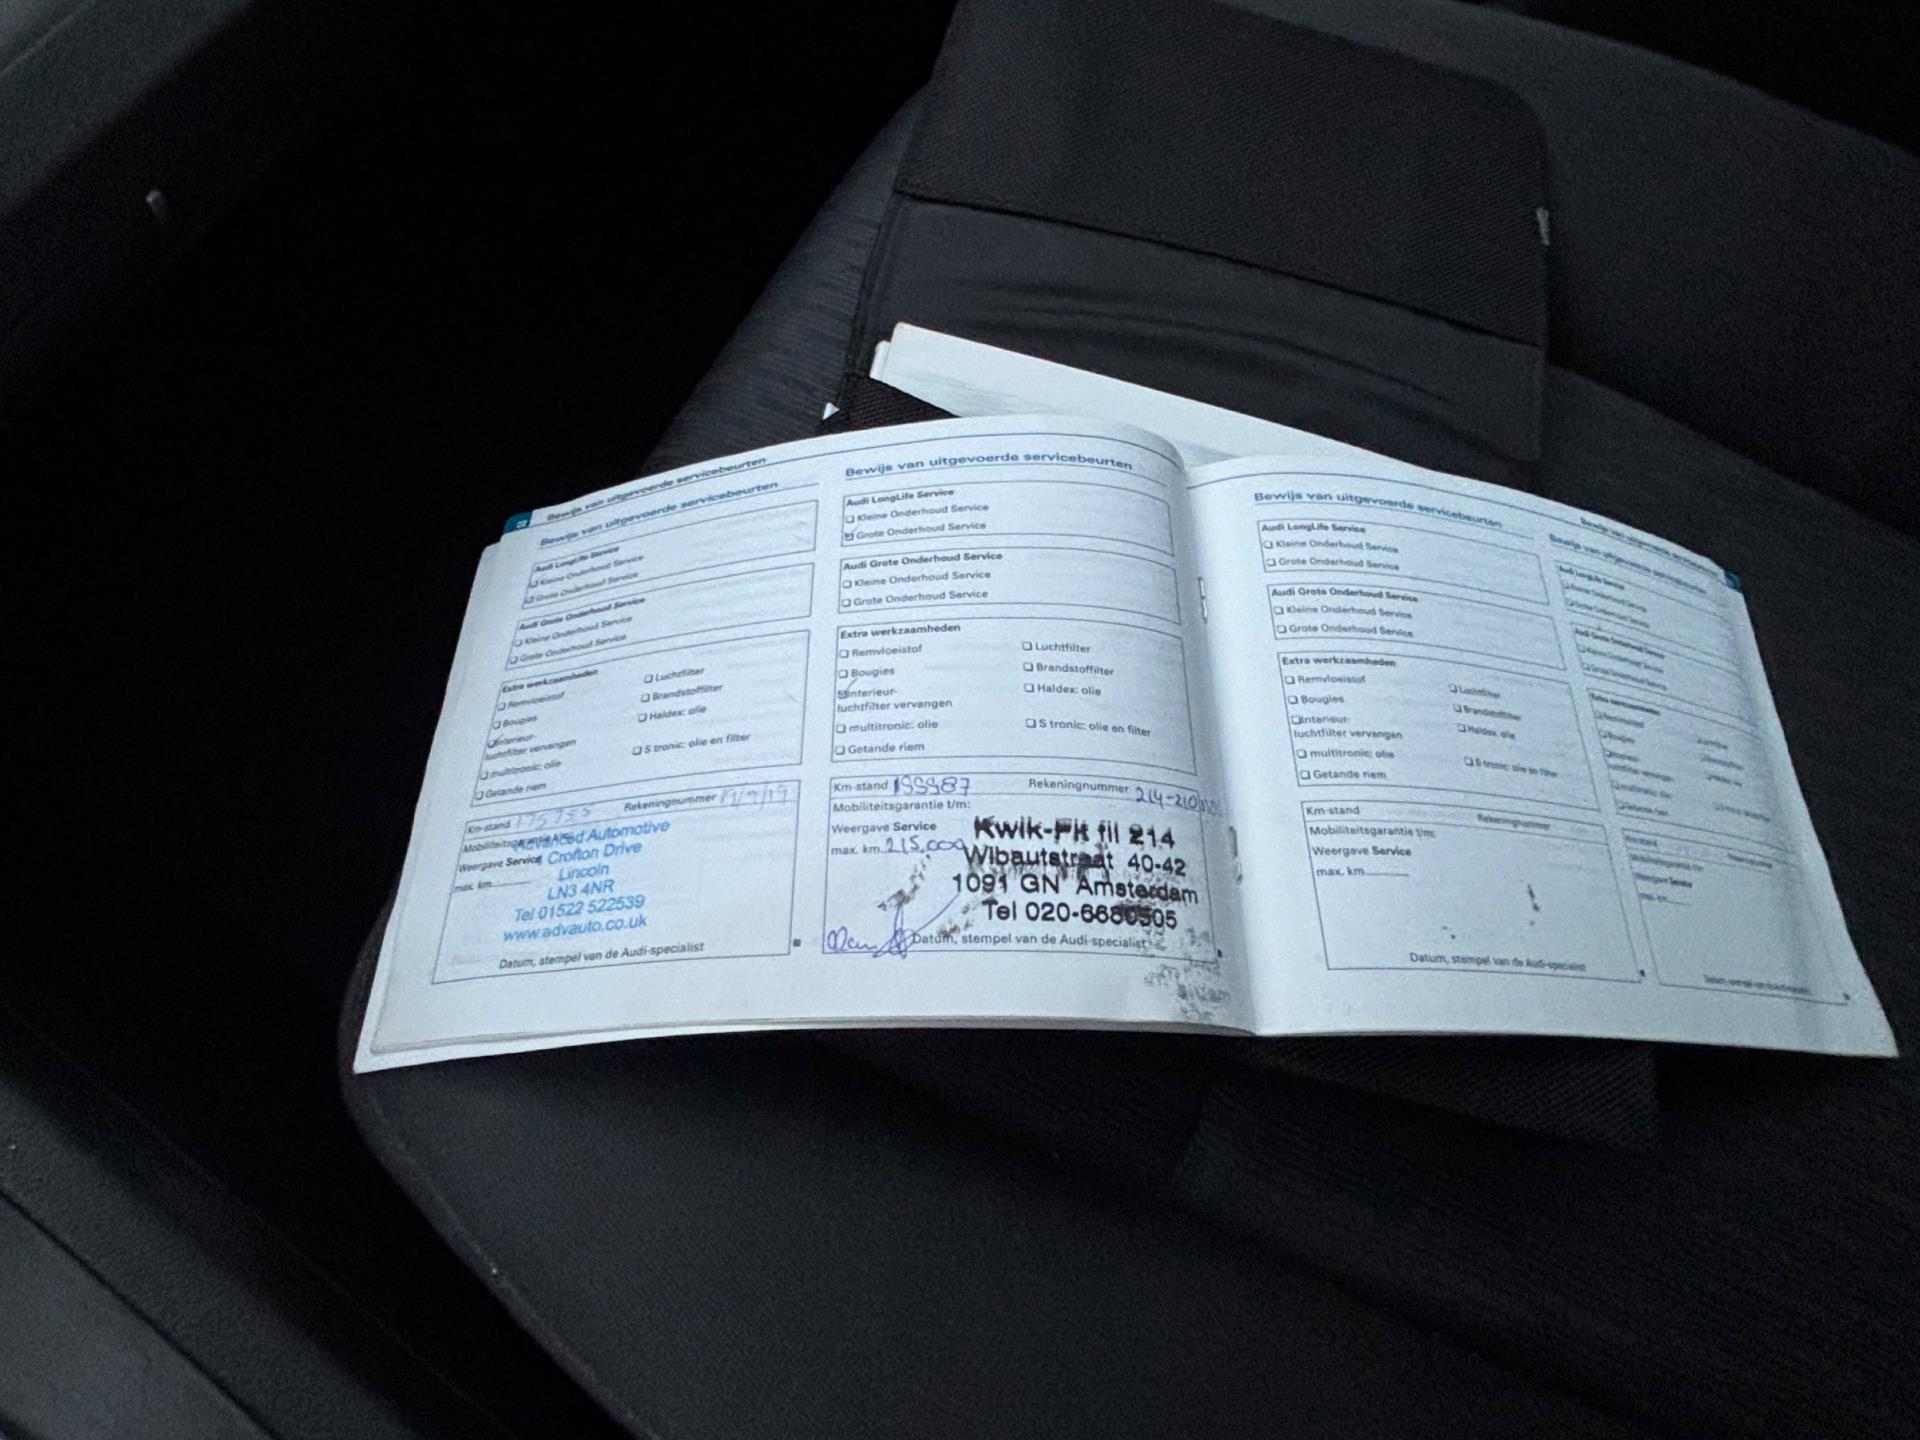 Bewijs van uitgevoerde servicebeurten
Bewijs van uitgevoerde servicebeurten
Audi LongLife Service
Kleine Onderhoud Service
Grote Onderhoud Service
Audi Grote Onderhoud Service
Kleine Onderhoud Service
Grote Onderhoud Service
Extra werkzaamheden
Remvloeistof
Bougies
Interieur-
luchtfilter vervangen
multitronic: olie
Getande riem
Luchtfilter
Brandstoffilter
Haldex: olie
S tronic: olie en filter
Km-stand
Rekeningnummer 19/9/19
Mobiliteitsgarantie
Weergave Service
max. km
Advanced Automotive
Crofton Drive
Lincoln
LN3 4NR
Tel 01522 522539
www.advauto.co.uk
Datum, stempel van de Audi-specialist
Bewijs van uitgevoerde servicebeurten
Audi LongLife Service
Kleine Onderhoud Service
Grote Onderhoud Service
Audi Grote Onderhoud Service
Kleine Onderhoud Service
Grote Onderhoud Service
Extra werkzaamheden
Remvloeistof
Bougies
Interieur-
luchtfilter vervangen
multitronic: olie
Getande riem
Luchtfilter
Brandstoffilter
Haldex: olie
S tronic: olie en filter
Km-stand 199987
Rekeningnummer
Mobiliteitsgarantie t/m:
Weergave Service
max. km. 215.000
Kwik-Fit fil 214
Wibautstraat 40-42
1091 GN Amsterdam
Tel 020-6680505
Datum, stempel van de Audi-specialist
Bewijs van uitgevoerde servicebeurten
Audi LongLife Service
Kleine Onderhoud Service
Grote Onderhoud Service
Audi Grote Onderhoud Service
Kleine Onderhoud Service
Grote Onderhoud Service
Extra werkzaamheden
Remvloeistof
Bougies
Interieur-
luchtfilter vervangen
multitronic: olie
Getande riem
Luchtfilter
Brandstoffilter
Haldex: olie
S tronic: olie en filter
Km-stand
Rekeningnummer
Mobiliteitsgarantie t/m:
Weergave Service
max. km
Datum, stempel van de Audi-specialist
Bewijs van uitgevoerde servicebeurten
Bewijs van uitgevoerde servicebeurten
Audi LongLife Service
Kleine Onderhoud Service
Grote Onderhoud Service
Audi Grote Onderhoud Service
Kleine Onderhoud Service
Grote Onderhoud Service
Extra werkzaamheden